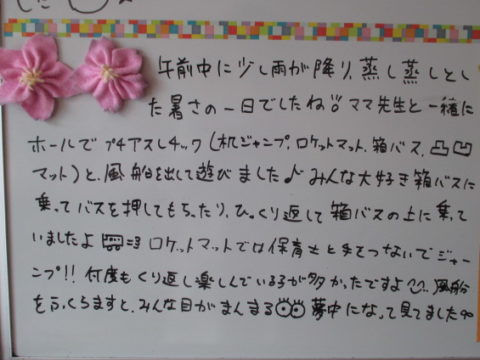 午前中に少し雨が降り、蒸し蒸しとし
た暑さの一日でしたね。ママ先生と一緒に
ホールでプチアスレチック(机ジャンプ、ロケットマット、箱バス、凸凹
マット)と、風船を出して遊びました♪みんな大好き箱バスに
乗ってバスを押してもらったり、ひっくり返して箱バスの上に乗って
いましたよ ロケットマットでは保育士と手をつないでジャー
ンプ!!何度もくり返し楽しんでいる子が多かったですよ 風船
をふくらますと、みんな目がまんまる 夢中になって見てました